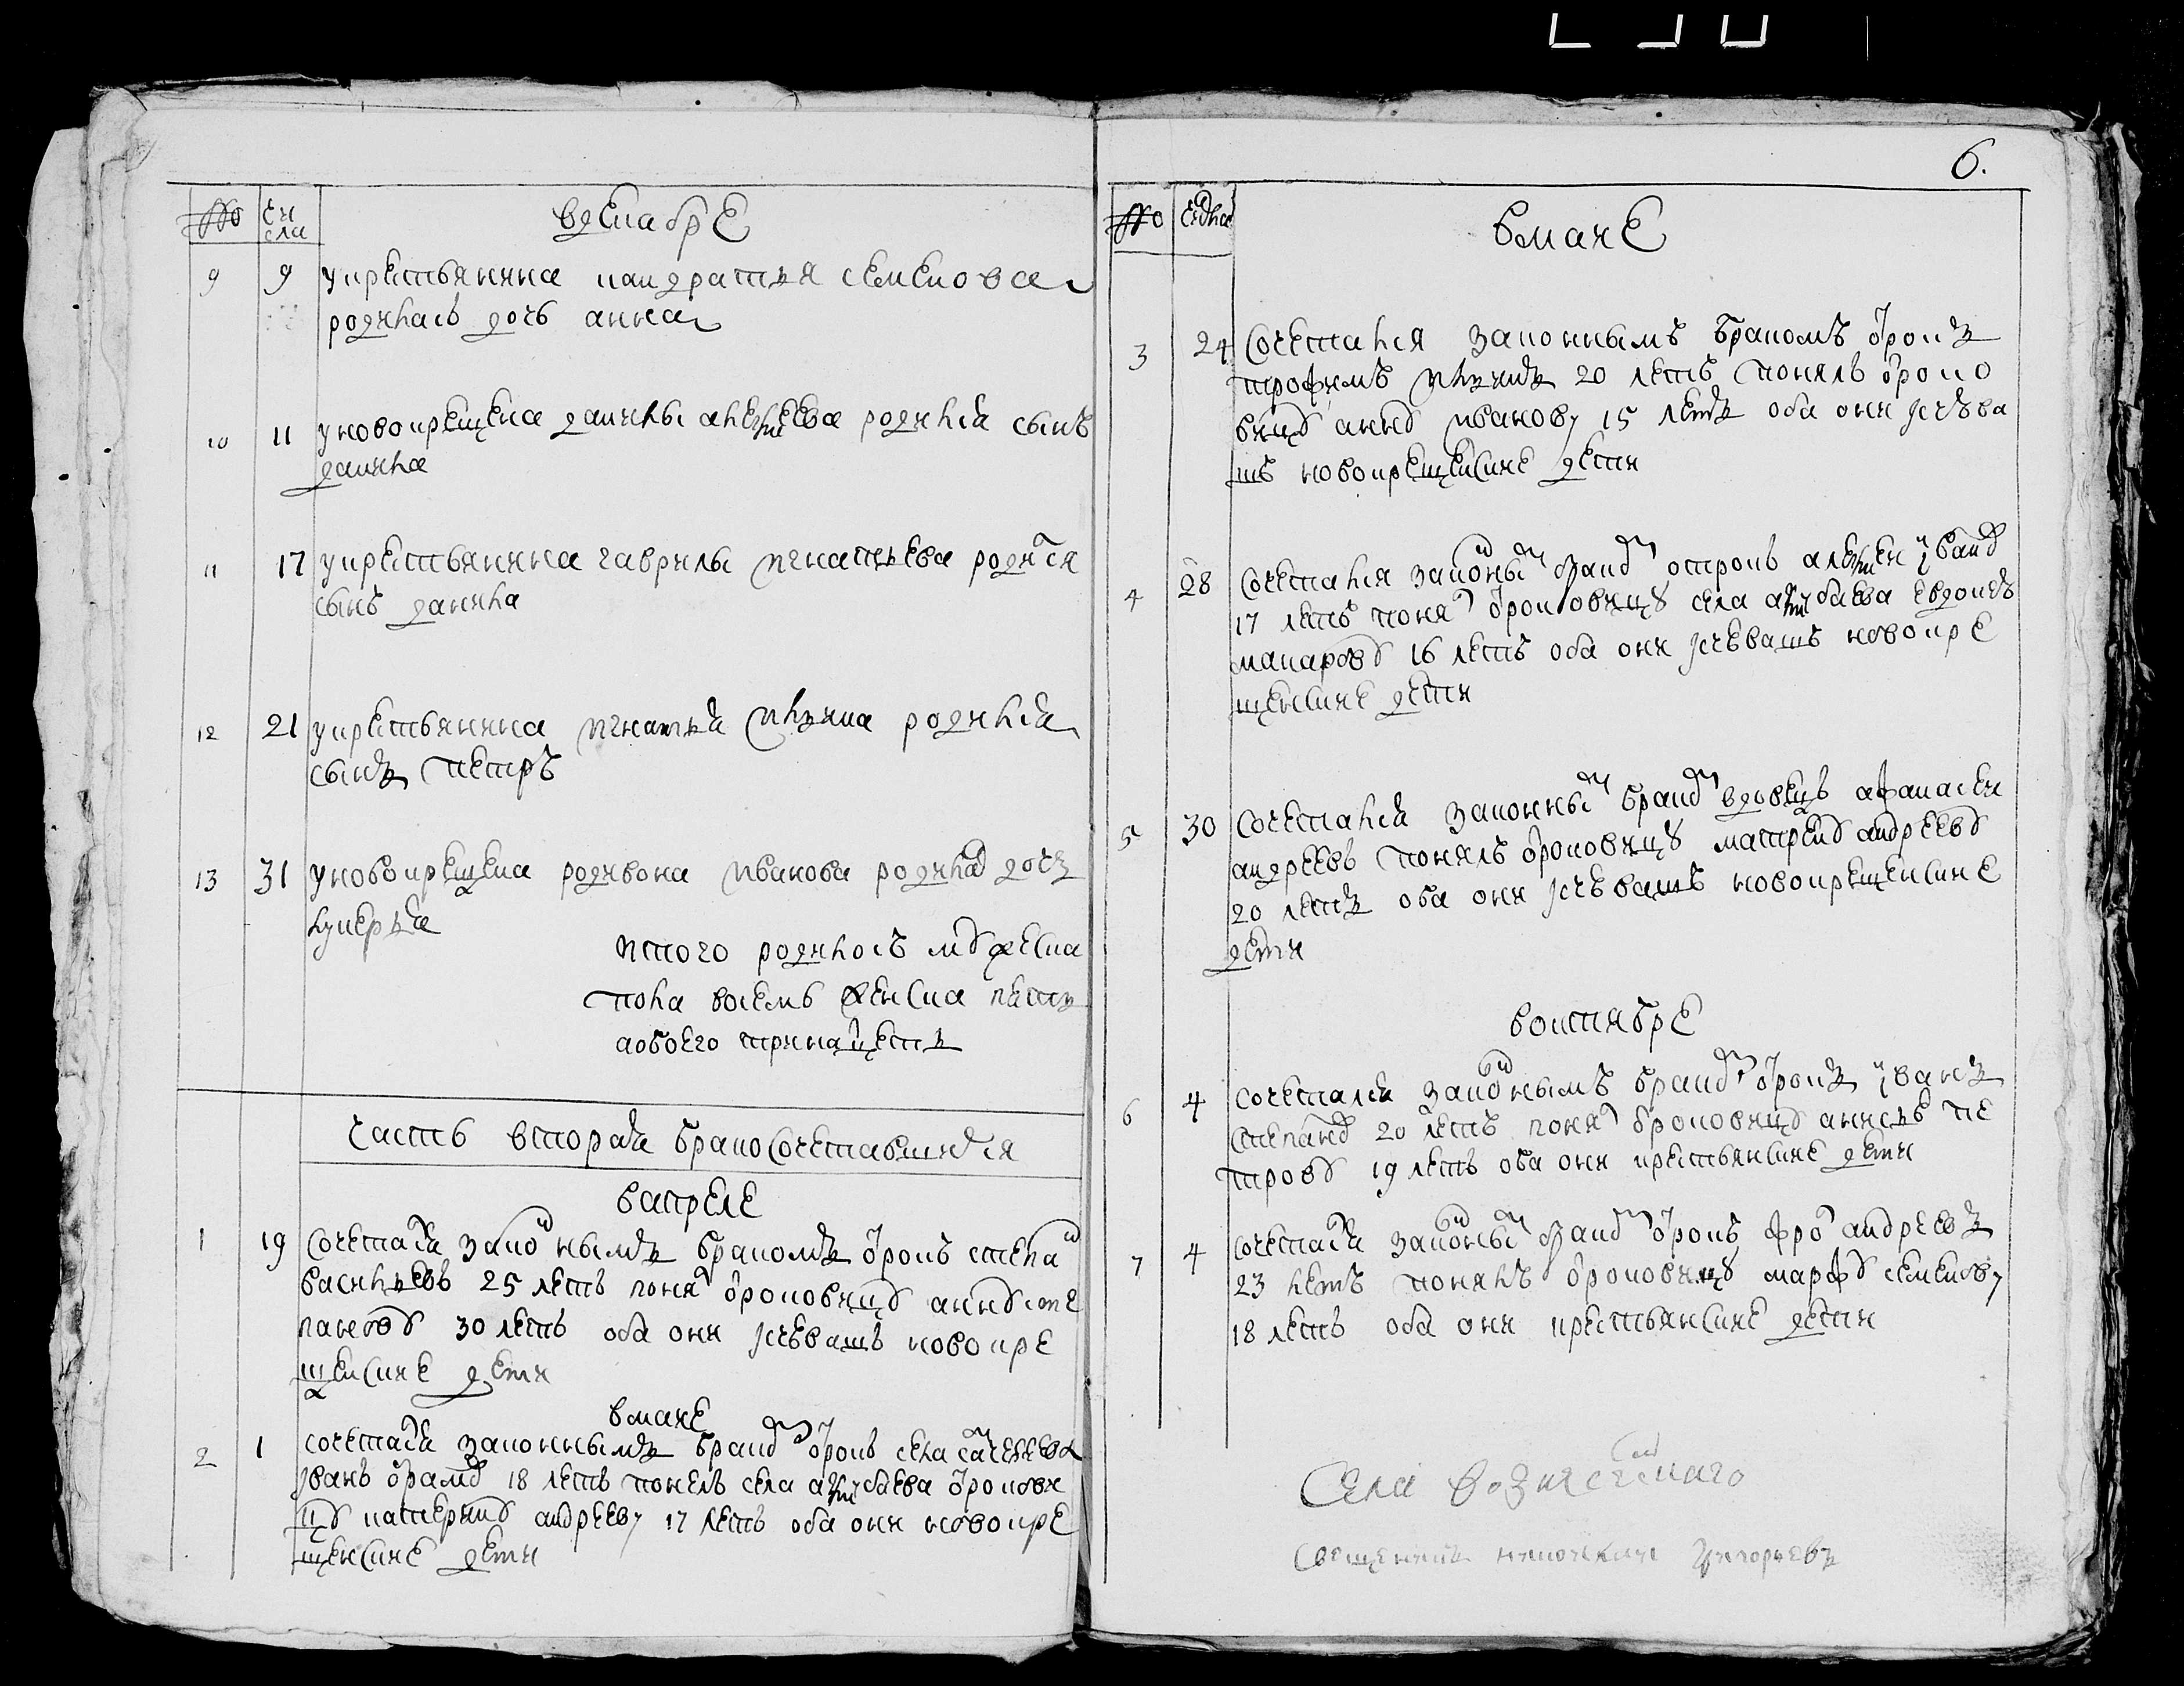 № чи
сла
в декабре
9 9 у крестьянина кандратья семенова
родилась дочь анна
10 11 у новокрещена данилы алексеева родился сынъ
данила
11 17 у крестьянина гаврилы игнатьева родился
сынъ данила
12 21 у крестьянина игнатья ильина родился
сынъ петръ
13 31 у новокрещена родивона иванова родилась дочь
лукерья
итого родилось мужеска
пола восемь женска пять
а обоего тринадцеть
часть вторая бракосочетавшихся
в апреле
1 19 сочетался законнымъ бракомъ отрокъ степан
васильевъ 25 летъ понял отроковицу анну сте
панову 30 летъ оба они изчювашъ новокре
щенские дети
в мане
2 1 сочетался законнымъ браком отрокъ села
иванъ 18 летъ понелъ села отрокови
цу катерину андрееву 17 летъ оба они новокре
щенские дети
6.
№ числа
в мане
3 24 сочетался законнымъ бракомъ отрокъ
трофимъ ильинъ 20 летъ понялъ отроко
вицу анну иванову 15 летъ оба они изчюва
шъ новокрещенские дети
4 28 сочетался законным браком отрокъ алексеи иванов
17 летъ понял отроковицу села евдокею
макарову 16 летъ оба они изчювашъ новокре
щенские дети
5 30 сочетался законным браком вдовецъ афанасеи
андреевъ понялъ отроковицу матрену андрееву
20 летъ оба они изчювашъ новокрещенские
дети
в октябре
6 4 сочетался законнымъ браком отрокъ иванъ
степанов 20 летъ понял отроковицу аннею пе
трову 19 летъ оба они крестьянские дети
7 4 сочетался законным браком отрокъ фрол андреевъ
23 летъ понялъ отроковицу марфу семенову
18 летъ оба они крестьянские дети
Села вознесенскаго
священникъ григорьевъ